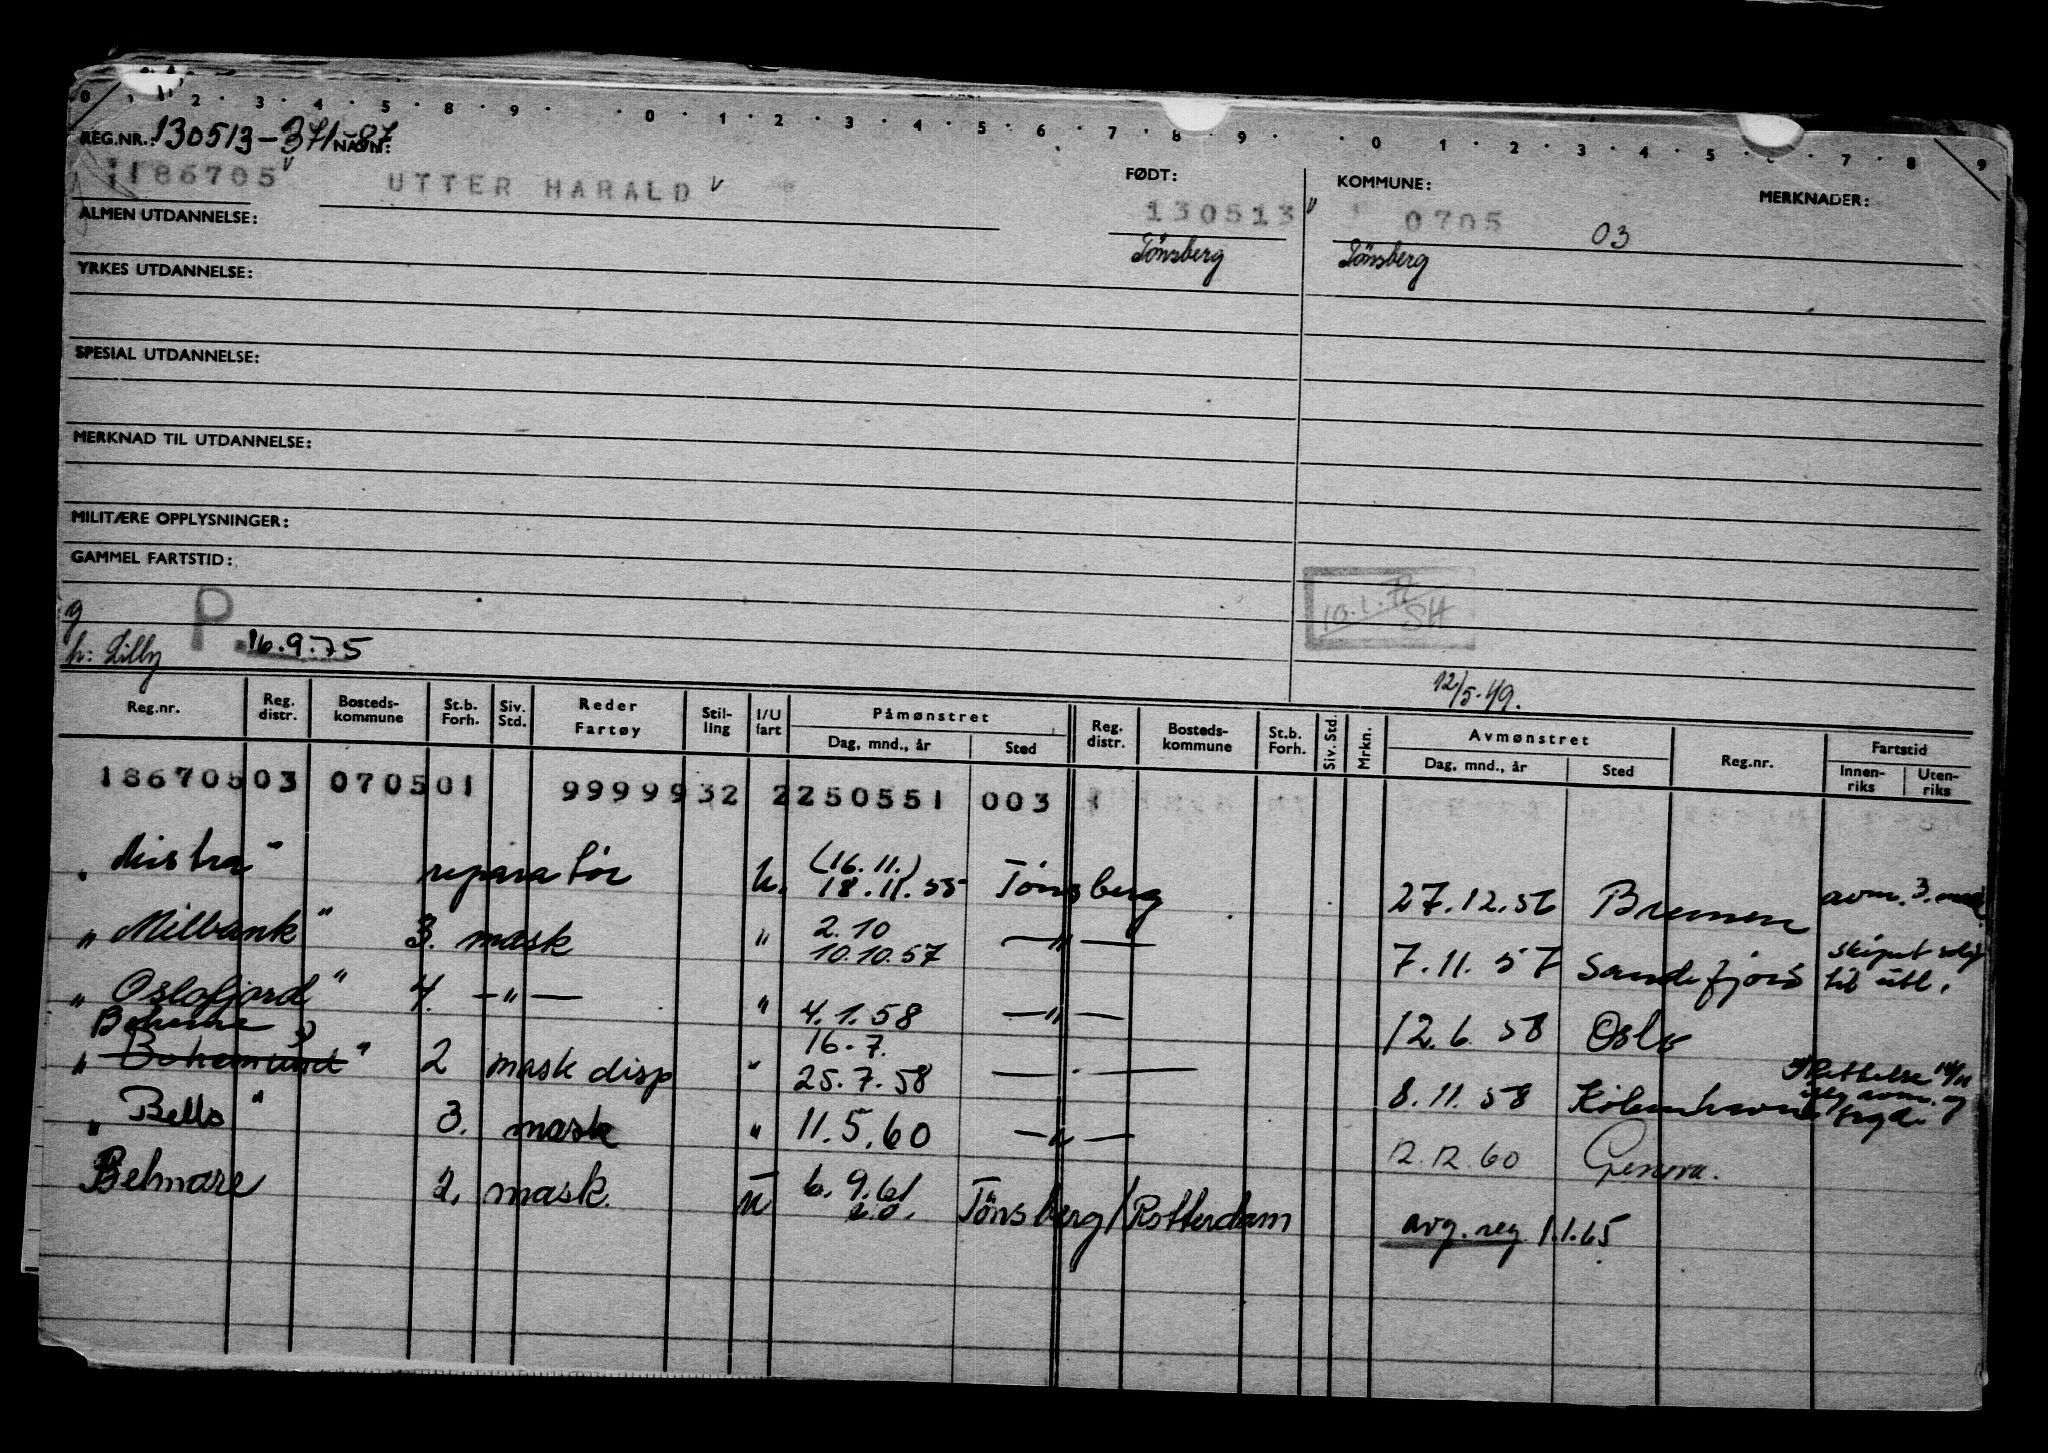 0 1 2 · 3 · 4 · 5 · 8 · 9 · · 0 · 1 · 2 · 3 · 4 · 5 · 6 · 7 · 8 · 9 · · 0 · 1 · 2 · 3 · 4 · 5 · 6 · 7 · 8 · 9
REG.NR.: 130513-371 87 NAVN:
186705 UTTER HARALD FØDT: 130513 KOMMUNE: 0705 03 MERKNADER:
ALMEN UTDANNELSE: Tönsberg Tönsberg
YRKES UTDANNELSE:
SPESIAL UTDANNELSE:
MERKNAD TIL UTDANNELSE:
MILITÆRE OPPLYSNINGER:
GAMMEL FARTSTID:
g P. 16.9.75 10.1.72 SH
h: Lilly 12/5.49.
Reg.nr. Reg. distr. Bosteds-kommune St.b. Forh. Siv. Std. Reder Fartøy Stil-ling I/U fart Påmønstret Dag, mnd., år Sted Reg. distr. Bosteds-kommune St.b. Forh. Siv. Std. Mrkn. Avmønstret Dag, mnd., år Sted Reg.nr. Fartstid Innen-riks Uten-riks
18670503 070501 9999932 2250551 003
" " reparatör u. (16.11.) 18.11.55 Tönsberg 27.12.56 Bremen avm. 3. mask
" Milbank " 3. mask " 2.10 10.10.57 —"— 7.11.57 Sandefjord skipet solgt til utl.
" Oslofjord " 4. —"— " 4.1.58 —"— 12.6.58 Oslo
Boheme
" Bohemund " 2 mask disp " 16.7. 25.7.58 —"— 8.11.58 Köbenhavn Rettelse avm. og
" Bello " 3. mask " 11.5.60 —"— 12.12.60 Genova.
Belmare 2. mask. u 6.9.61 Tönsberg/Rotterdam avg. reg 1.1.65